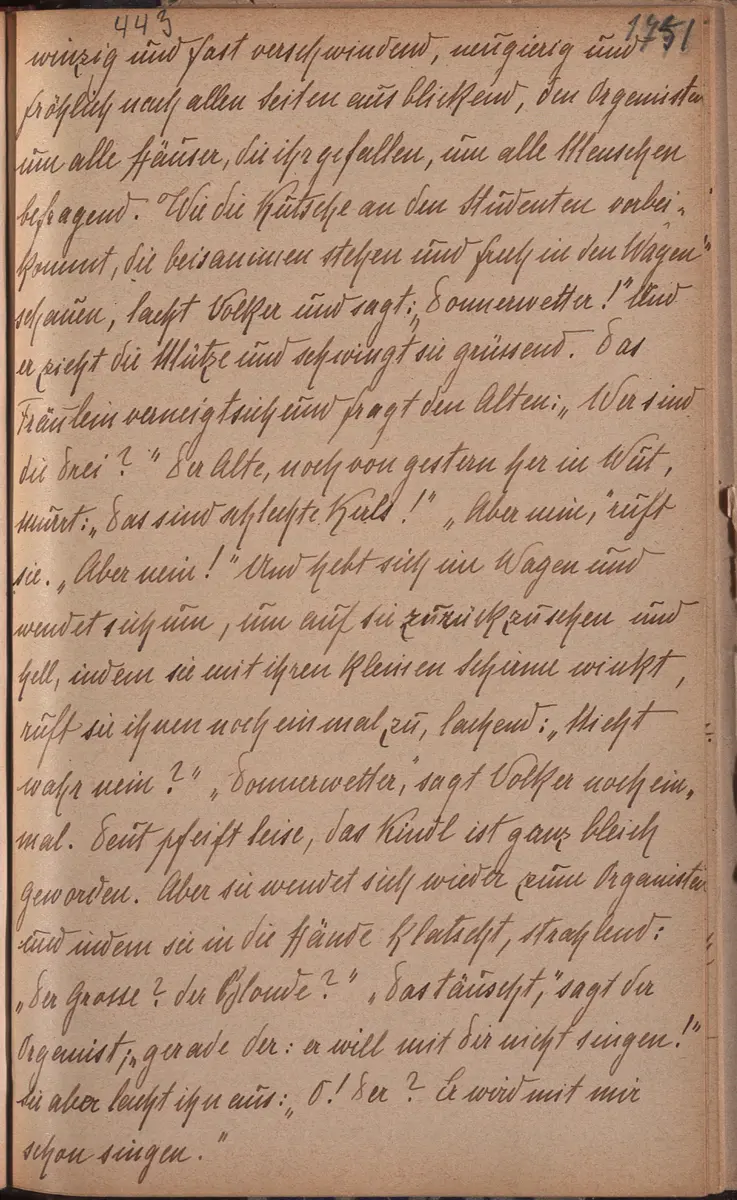 443
1751
winzig und fast verschwindend, neugierig und
fröhlich nach allen Seiten ausblickend, den Organisten
um alle Häuser, die ihr gefallen, um alle Menschen
befragend. Wie die Kutsche an den Studenten vorbei-
kommt, die beisammen stehen und frech in den Wagen
schauen, lacht Volker und sagt: „Donnerwetter!" Und
er zieht die Mütze und schwingt sie grüssend. Das
Fräulein verneigt sich und fragt den Alten: „Wer sind
die Drei?" Der Alte, noch von gestern her in Wut,
murrt: „Das sind schlechte Kerls!" „Aber nein," ruft
sie. „Aber nein!" Und hebt sich im Wagen und
wendet sich um, um auf sie zurückzusehen und
hell, indem sie mit ihren kleinen Schirme winkt,
ruft sie ihnen noch einmal zu, lachend: „Nicht
wahr nein?" „Donnerwetter," sagt Volker noch ein-
mal. Deut pfeift leise, das Kindl ist ganz bleich
geworden. Aber sie wendet sich wieder zum Organisten
und indem sie in die Hände klatscht, strahlend:
„Der Grosse? der Blonde?" „Das täuscht," sagt der
Organist; „gerade der: er will mit Dir nicht singen!"
Sie aber lacht ihn aus: „O! Der? Er wird mit mir
schon singen."